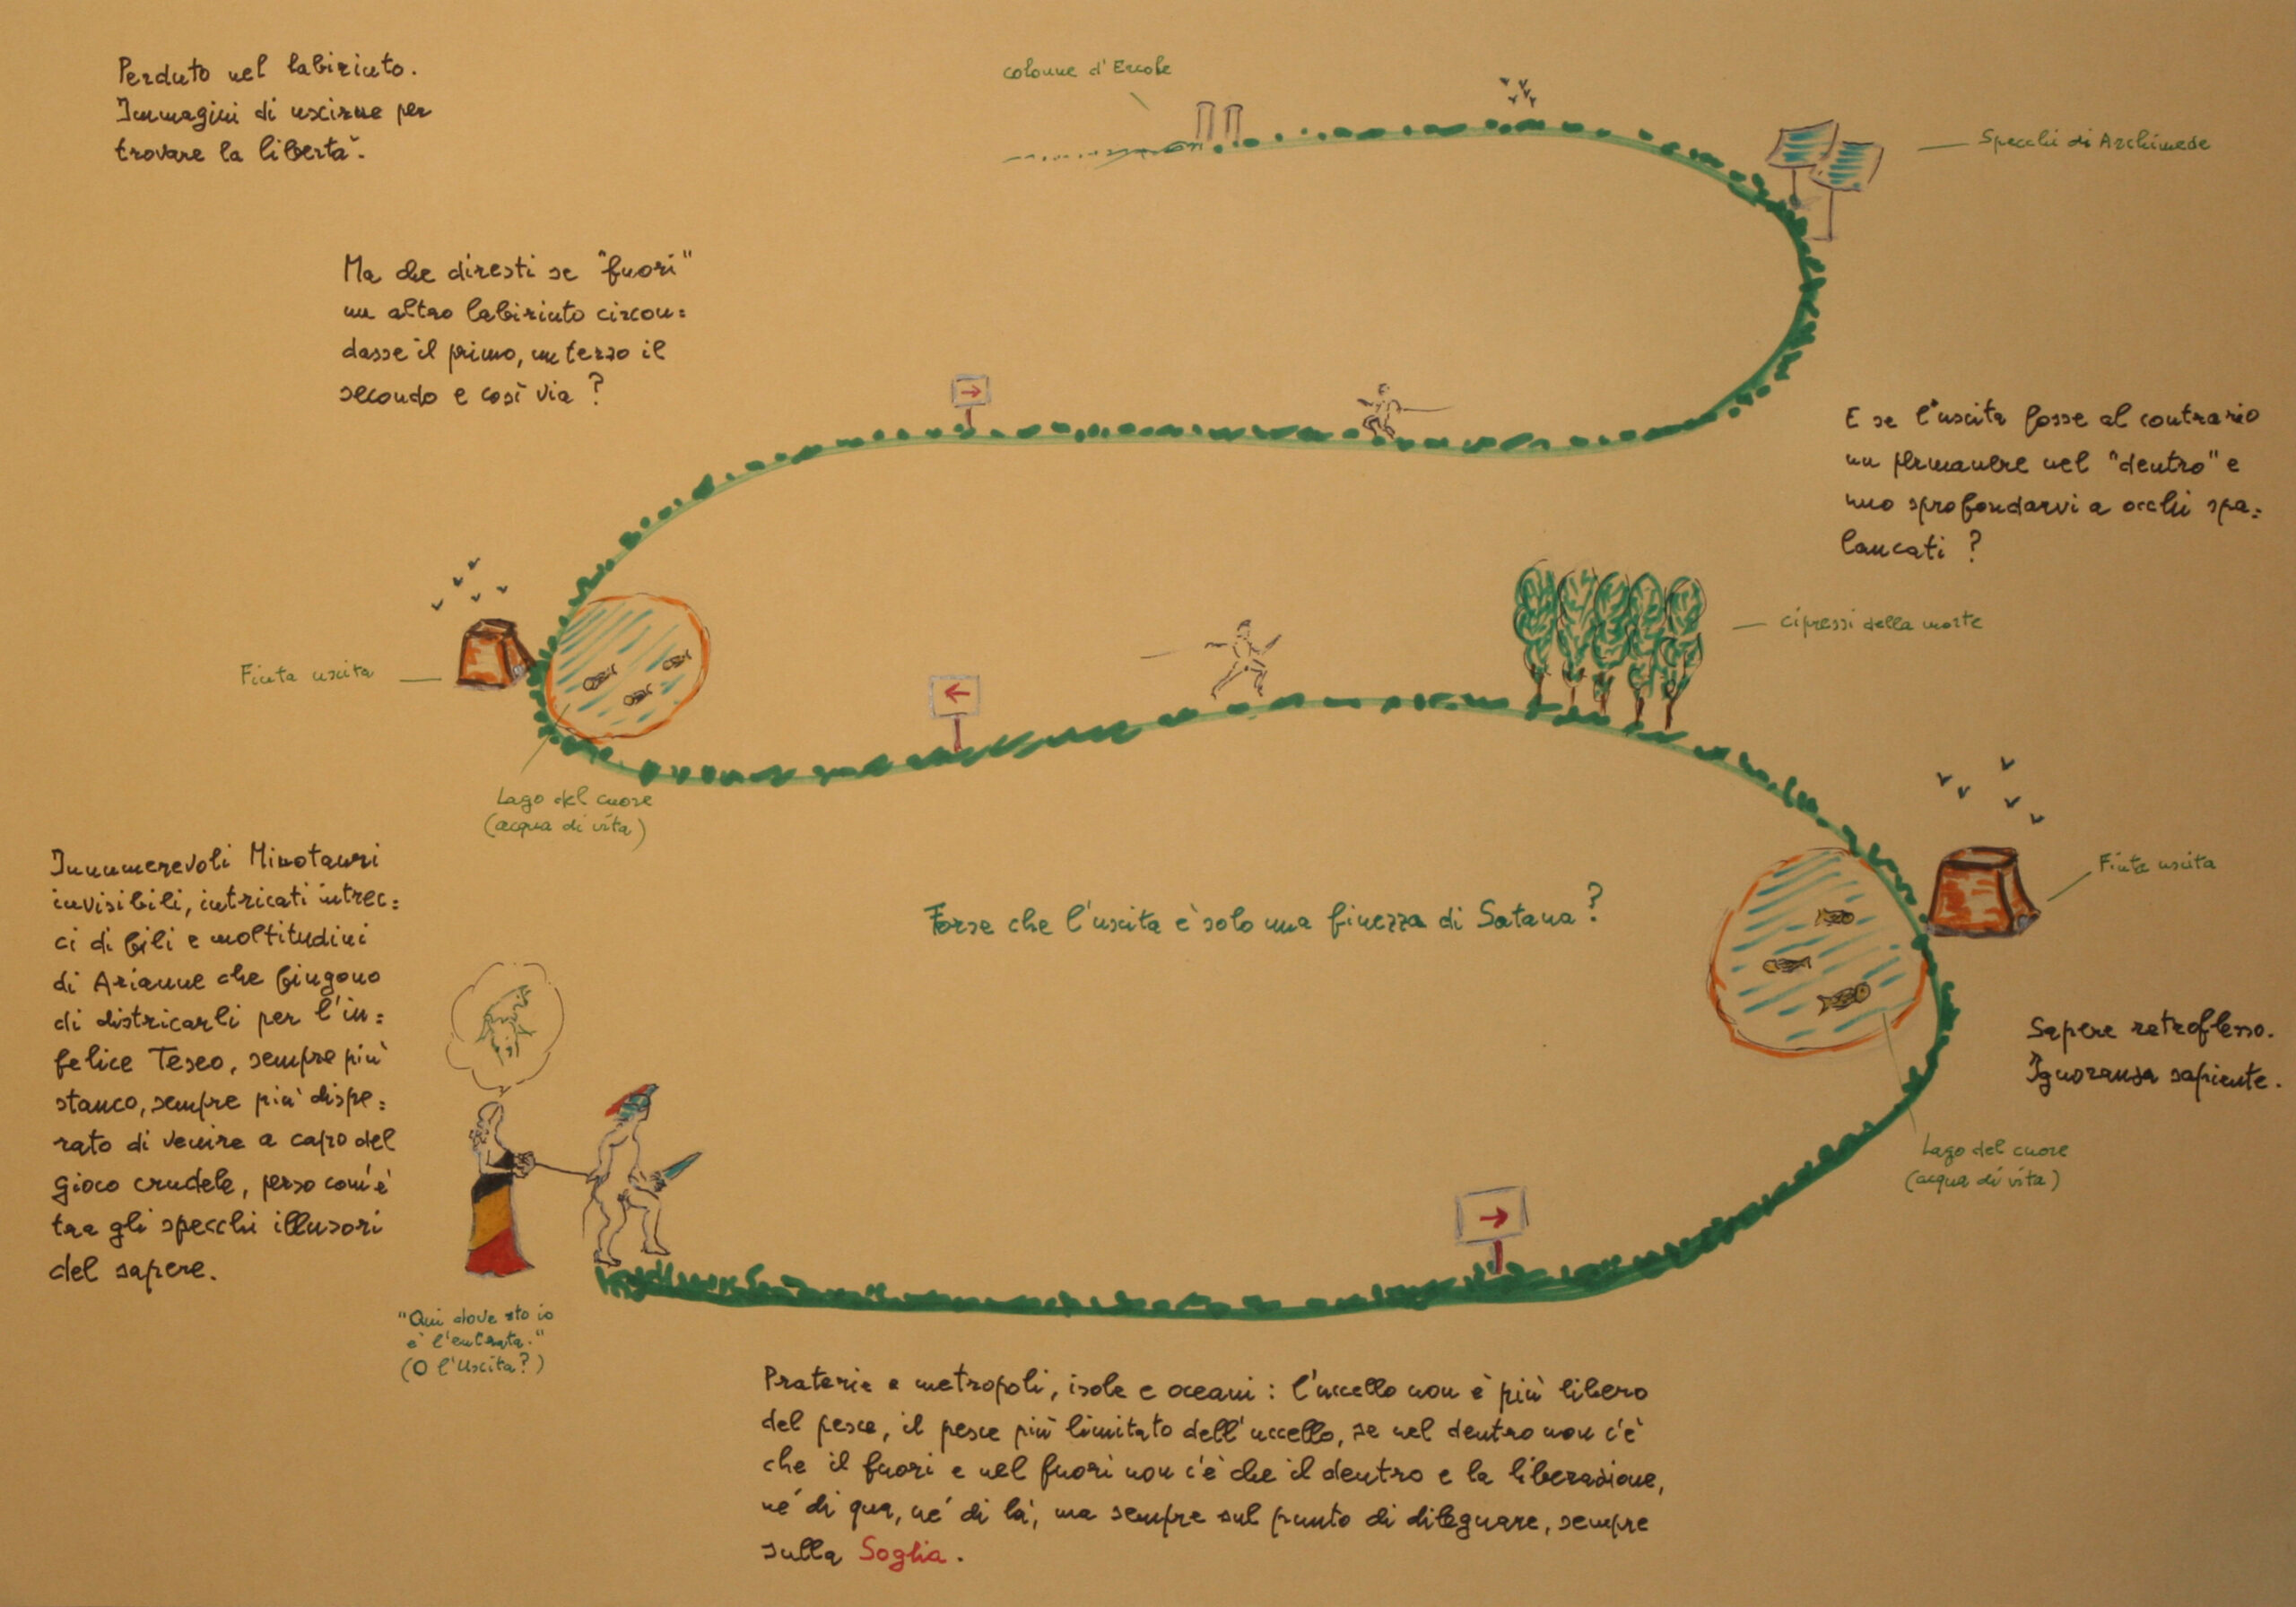 Perduto nel labirinto.
Immagini di uscirne per
trovare la libertà.
colonne d'Ercole
Specchi di Archimede
Ma che diresti se "fuori"
un altro labirinto circon=
dasse il primo, un terzo il
secondo e così via ?
E se l'uscita fosse al contrario
un permanere nel "dentro" e
uno sprofondarvi a occhi spa=
lancati ?
cipressi della morte
Finta uscita
Lago del cuore
(acqua di vita)
Finta uscita
Innumerevoli Minotauri
invisibili, intricati intrec=
ci di fili e moltitudini
di Arianne che fingono
di districarli per l'in=
felice Teseo, sempre più
stanco, sempre più dispe=
rato di venire a capo del
gioco crudele, perso com'è
tra gli specchi illusori
del sapere.
Forse che l'uscita è solo una finezza di Satana ?
Sapere retroflesso.
Ignoranza sapiente.
Lago del cuore
(acqua di vita)
"Qui dove sto io
è l'entrata."
(O l'Uscita?)
Praterie e metropoli, isole e oceani : l'uccello non è più libero
del pesce, il pesce più limitato dell'uccello, se nel dentro non c'è
che il fuori e nel fuori non c'è che il dentro e la liberazione,
né di qua, né di là, ma sempre sul punto di dileguare, sempre
sulla Soglia.